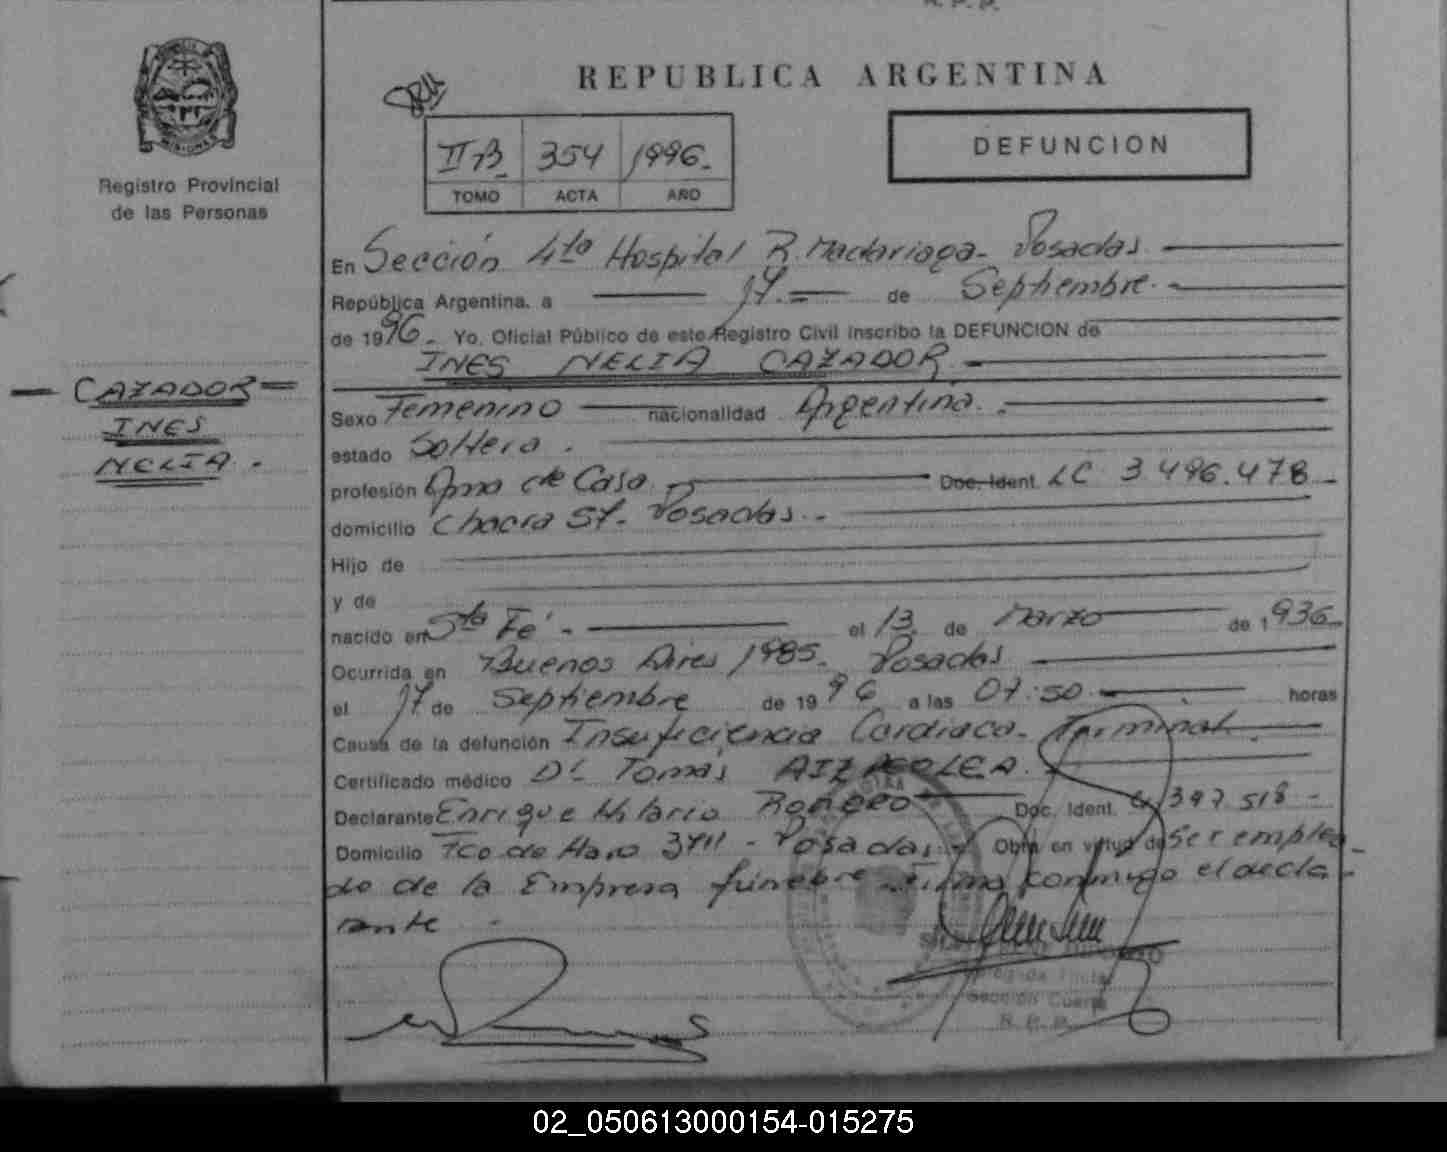 R. P. P.
REPUBLICA ARGENTINA
MISIONES
Registro Provincial
de las Personas
IIB 354 1996.
TOMO ACTA AÑO
DEFUNCION
En Sección 4ta Hospital R. Madariaga - Posadas.
República Argentina. a 17. de Septiembre.
de 1996. Yo, Oficial Público de este Registro Civil inscribo la DEFUNCION de
INES NELIA CAZADOR
CAZADOR
INES
NELIA.
Sexo Femenino nacionalidad Argentina.
estado Soltera.
profesión Ama de Casa. Doc. Ident. LC 3.496.478
domicilio Chacra 57. Posadas.
Hijo de
y de
nacido en Sta Fé el 13 de Marzo de 1936
Ocurrida en Buenos Aires 1985. Posadas
el 17 de Septiembre de 1996 a las 07:50 horas
Causa de la defunción Insuficiencia Cardiaca. Terminal.
Certificado médico Dr Tomas
Declarante Enrique Hilario Romero Doc. Ident. 397 518
Domicilio Fco. de Haro 3711 - Posadas - Obra en virtud de Ser emplea
do de la Empresa fúnebre firma conmigo el decla
rante
Sección Cuarta
R. P. P.
02_050613000154-015275